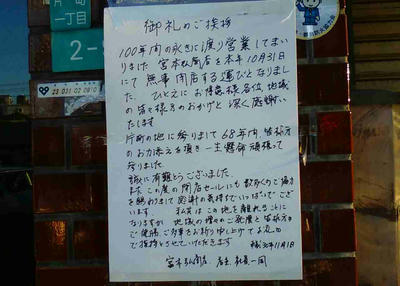 片町
一丁目
2-
23 031 02 0810
御礼のご挨拶
100年間の永きに渡り営業してまい
りました 宮本 閉店を本年10月31日
にて無事閉店する運びとなりまし
た。ひとえにお得意様各位、地域
の皆々様方のおかげと深く感謝い
たします
片町の地に移りまして68年間、皆様方
のお力添えを頂き一生懸命頑張って
参りました。
誠に有難うございました。
また この度の閉店セールにも数多くのご協力
を賜わりまして感謝の気持ちでいっぱいでござ
います 私共はこの地を離れることに
なりますが 地域の様々のご発展と皆様方
ご健勝、ご多幸をお祈り申し上げて
ご挨拶とさせていただきます
11月1日
宮本 商店 店主 社員一同